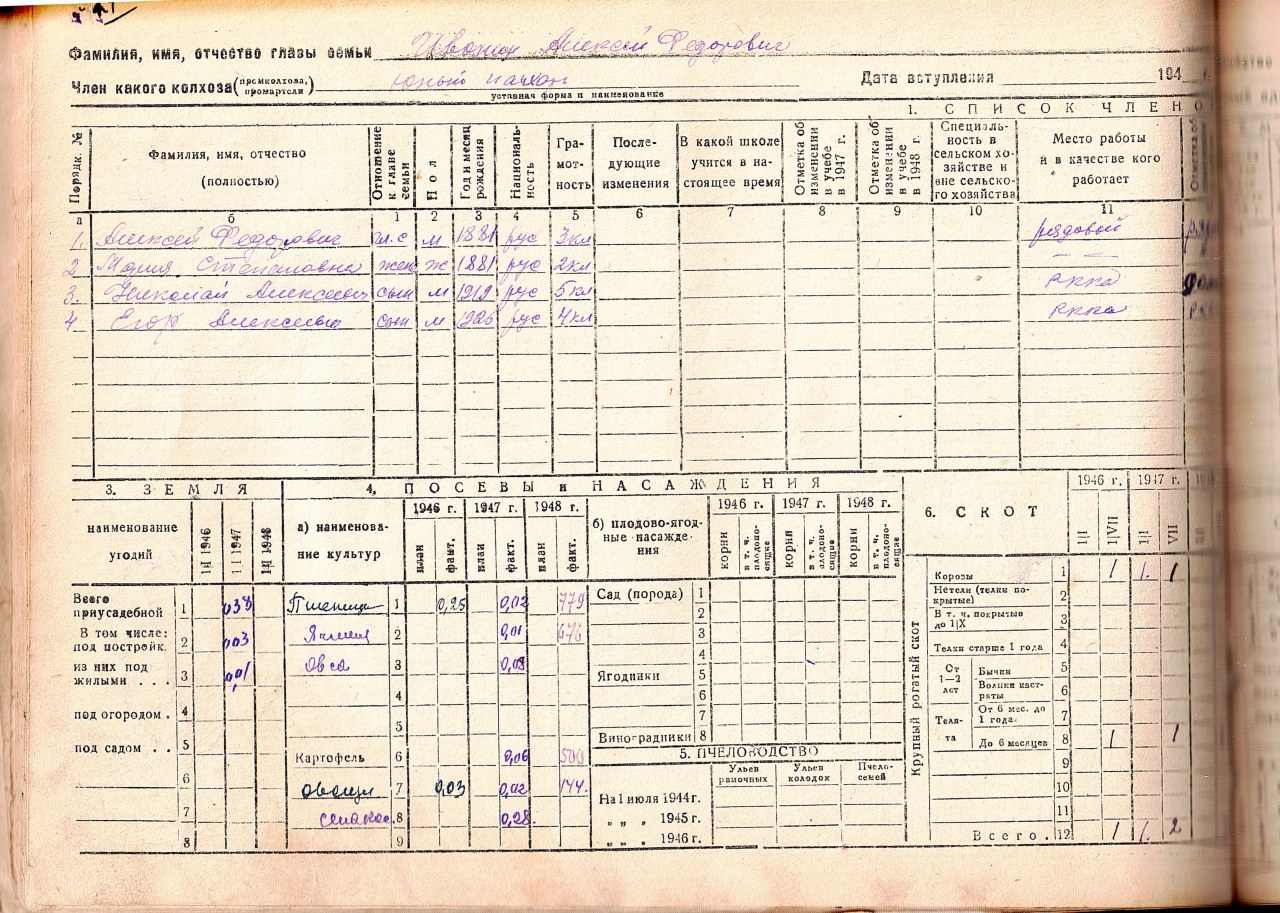 Фамилия, имя, отчество главы семьи Алексей Федорович
Член какого колхоза (промколхоза, промартели) юный пахарь
уставная форма и наименование
Дата вступления 194
1. СПИСОК ЧЛЕНО
Порядк. №
Фамилия, имя, отчество (полностью)
Отношение к главе семьи
Пол
Год и месяц рождения
Националь-ность
Гра-мот-ность
После-дующие изменения
В какой школе учится в на-стоящее время
Отметка об изменении в учебе в 1947 г.
Отметка об изменении в учебе в 1948 г.
Специаль-ность в сельском хо-зяйстве и вне сельско-го хозяйства
Место работы и в качестве кого работает
а б 1 2 3 4 5 6 7 8 9 10 11
1. Алексей Федорович гл. с м 1881 рус 3кл рядовой
2 Мария Степановна жен ж 1881 рус 2кл — —
3. Николай Алексеевич сын м 1919 рус 5кл ркка
4 Егор Алексеевич сын м 1926 рус 4кл ркка
3. ЗЕМЛЯ
наименование угодий
1|I 1946
1.I 1947
1|I 1948
Всего приусадебной 1 038
В том числе: под постройк. 2 003
из них под жилыми . . . 3 001
под огородом . 4
под садом . . 5
6
7
8
4, ПОСЕВЫ и НАСАЖДЕНИЯ
а) наименова-ние культур
1946 г. 1947 г. 1948 г.
план факт. план факт. план факт.
Пшеница 1 0,25 0,02 779
Ячмень 2 0,01 676
Овса 3 0,08
4
5
Картофель 6 0,06 500
овощи 7 0,03 0,02 144.
8 0,28
9
б) плодово-ягод-ные насажде-ния
1946 г. 1947 г. 1948 г.
корни в т. ч. плодоно-сящие корни в т. ч. плодоно-сящие корни в т. ч. плодоно-сящие
Сад (порода) 1
2
3
4
Ягодники 5
6
7
Виноградники 8
5. ПЧЕЛОВОДСТВО
Ульев рамочных
Ульев колодок
Пчело-семей
На 1 июля 1944 г.
„ „ „ 1945 г.
„ „ „ 1946 г.
6. СКОТ
1946 г. 1947 г.
1|I 1|VII 1|I VII
Крупный рогатый скот
Коровы 1 1 1. 1
Нетели (телки по-крытые) 2
В т. ч. покрытые до 1|IX 3
Телки старше 1 года 4
От 1—2 лет
Бычки 5
Волики каст-раты 6
Теля-та
От 6 мес. до 1 года. 7
До 6 месяцев 8 1 1
9
10
11
Всего. 12 1 1. 2